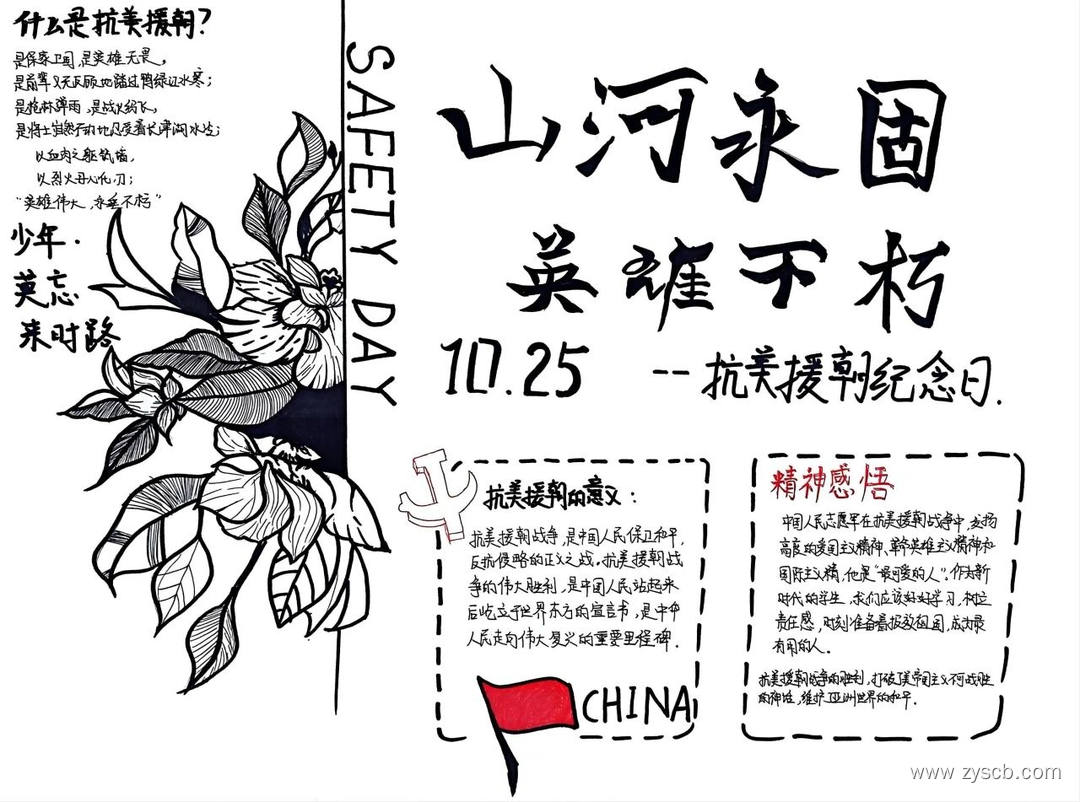 什么是抗美援朝?
是保家卫国,是英雄无畏,
是前辈义无反顾地踏过鸭绿江水寒;
是枪林弹雨,是战火纷飞,
是将士岿然不动地忍受着长津湖水冷;
以血肉之躯筑墙,
以烈火丹心化刃;
“英雄伟大,永垂不朽”
少年·
莫忘
来时路
SAFETY DAY
山河永固
英雄不朽
10.25
--抗美援朝纪念日.
抗美援朝的意义:
抗美援朝战争,是中国人民保卫和平,
反抗侵略的正义之战。抗美援朝战
争的伟大胜利,是中国人民站起来
后屹立于世界东方的宣言书,是中华
人民走向伟大复兴的重要里程碑.
CHINA
精神感悟
中国人民志愿军在抗美援朝战争中,发扬
高度的爱国主义精神、革命英雄主义精神和
国际主义精,他是“最可爱的人”。作为新
时代的学生,我们应该好好学习,树立
责任感,时刻准备着报效祖国,成为最
有用的人。
抗美援朝战争的胜利,打破了美帝国主义不可战胜
的神话,维护了亚洲世界的和平.
www zyscb.com